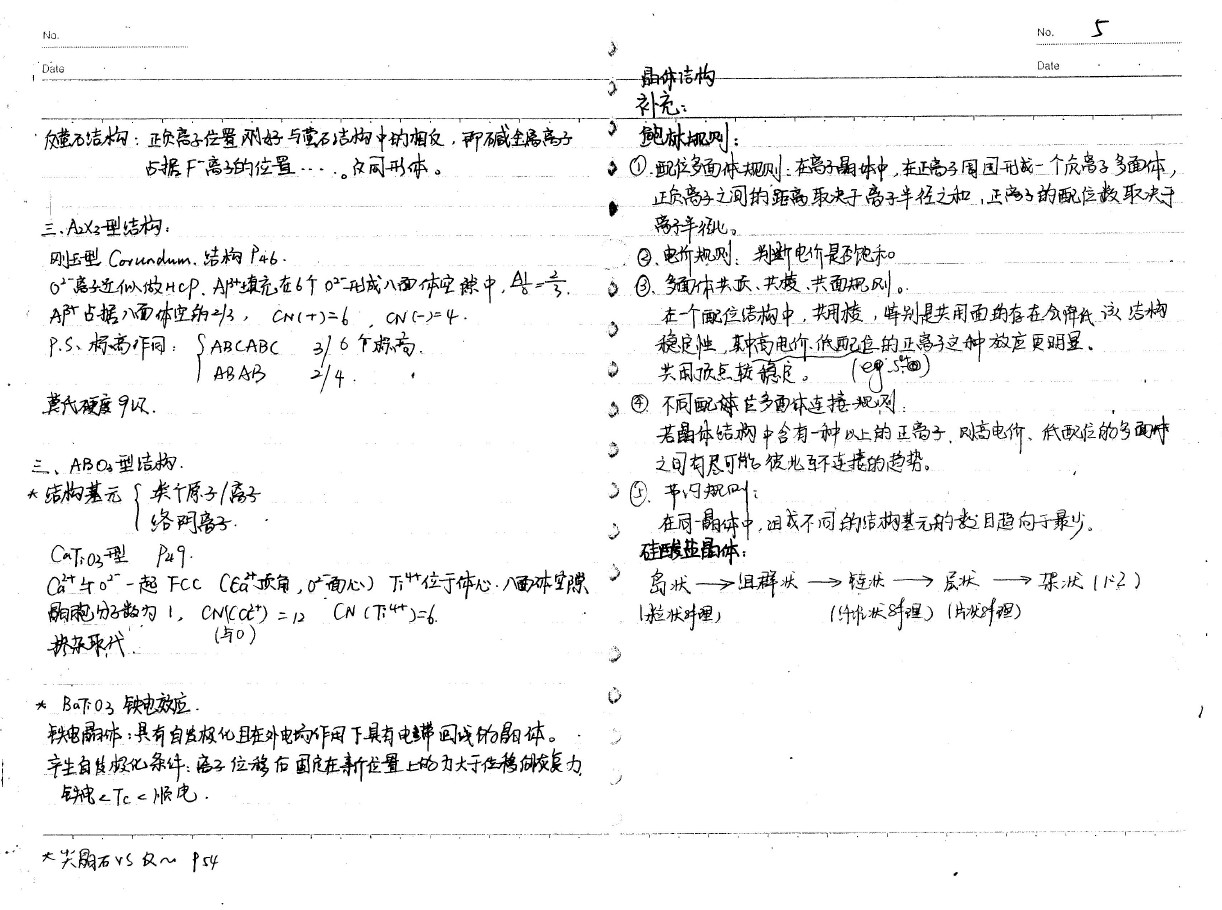 No.
Date
反萤石结构：正负离子位置刚好与萤石结构中的相反，即碱金属离子
占据F⁻离子的位置····。反同形体。
三、A₂X₃型结构：
刚玉型 Corundum. 结构 P46.
O²⁻离子近似做HCP. Al³⁺填充在6个O²⁻形成八面体空隙中,
Al³⁺占据八面体空的2/3, CN(+)=6, CN(-)=4.
P.S. 标高作同： { ABCABC 3/6个标高.
ABAB 2/4.
莫氏硬度9级.
三、ABO₃型结构.
* 结构基元 { 某个原子/离子
络阴离子.
CaTiO₃型 P49.
Ca²⁺与O²⁻一起FCC (Ca²⁺顶角, O²⁻面心) Ti⁴⁺位于体心. 八面体空隙
晶胞分子数为1, CN(Ca²⁺)=12 CN(Ti⁴⁺)=6.
(与O)
掺杂取代.
* BaTiO₃ 铁电效应.
铁电晶体：具有自发极化且在外电场作用下具有电滞回线的晶体。
产生自发极化条件：离子位移后固定在新位置上的力大于位移的恢复力
铁电<Tc<顺电.
* 尖晶石 VS 反~ P54
No. 5
Date
晶体结构
补充：
鲍林规则：
①.配位多面体规则：在离子晶体中，在正离子周围形成一个负离子多面体，
正负离子之间的距离取决于离子半径之和，正离子的配位数取决于
离子半径比。
②.电价规则：判断电价是否饱和。
③.多面体共顶、共棱、共面规则。
在一个配位结构中，共用棱，特别是共用面的存在会降低该结构
稳定性，其中高电价、低配位的正离子这种效应更明显。
共用顶点较稳定。 (eg.
④.不同配位多面体连接规则：
若晶体结构中含有一种以上的正离子，则高电价、低配位的多面体
之间有尽可能彼此互不连接的趋势。
⑤.节约规则：
在同一晶体中，组成不同的结构基元的数目趋向于最少。
硅酸盐晶体：
岛状 → 组群状 → 链状 → 层状 → 架状 (1:2)
(粒状解理) (纤维状解理) (片状解理)